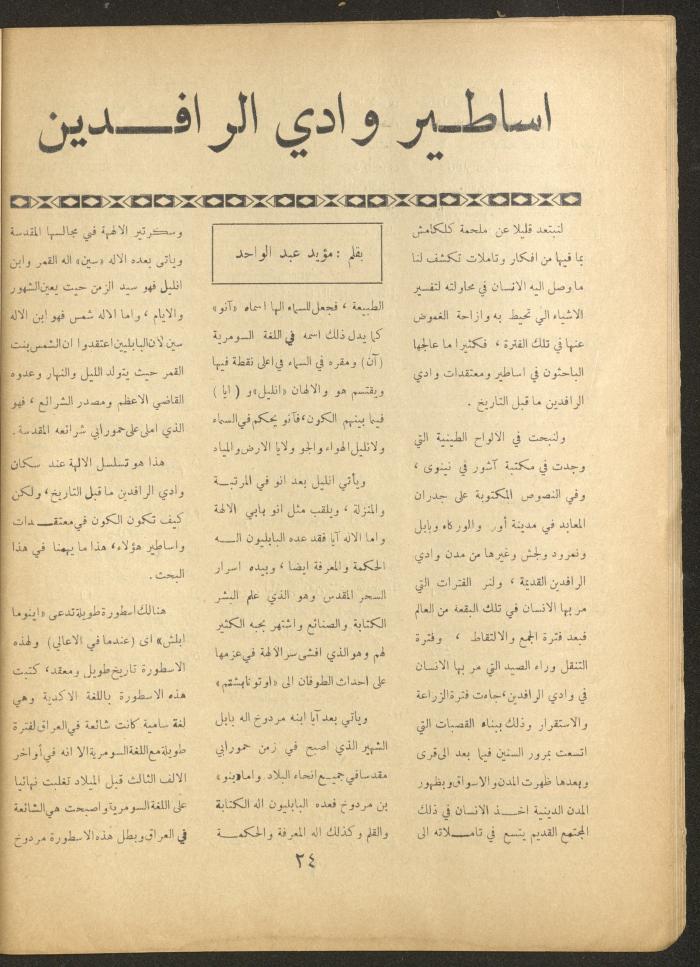 اساطير وادي الرافدين
لنبتعد قليلا عن ملحمة كلكامش
بما فيها من افكار وتاملات تكشف لنا
ما وصل اليه الانسان في محاولته لتفسير
الاشياء التي تحيط به وازاحة الغموض
عنها في تلك الفترة ، فكثيرا ما عالجها
الباحثون في اساطير ومعتقدات وادي
الرافدين ما قبل التاريخ .
ولنبحث في الالواح الطينية التي
وجدت في مكتبة آشور في نينوى ،
وفي النصوص المكتوبة على جدران
المعابد في مدينة أور والوركاء وبابل
ونمرود ولجش وغيرها من مدن وادي
الرافدين القديمة ، ولنر الفترات التي
مر بها الانسان في تلك البقعه من العالم
فبعد فترة الجمع والالتقاط ، وفترة
التنقل وراء الصيد التي مر بها الانسان
في وادي الرافدين، جاءت فترة الزراعة
والاستقرار وذلك ببناء القصبات التي
اتسعت بمرور السنين فيما بعد الى قرى
وبعدها ظهرت المدن والاسواق وبظهور
المدن الدينية اخــذ الانسان في ذلك
المجتمع القديم يتسع في تامــلاته الى
بقلم : مؤيد عبد الواحد
الطبيعة ، فجعل للسماء الها اسماه «آنو»
كما يدل ذلك اسمه في اللغة السومرية
(آن) ومقره في السماء في اعلى نقطة فيها
ويقتسم هو والالهان «انليل» و ( ايا )
فيما بينهم الكون، فآنو يحكم في السماء
ولانليل الهواء والجو ولايا الارض والمياه
ويأتي انليل بعد انو في المرتبــة
والمنزلة ، ويلقب مثل انو بابي الالهة
واما الاله آيا فقد عده البابليون الــه
الحكمة والمعرفة ايضا ، وبيده اسرار
السحر المقدس وهو الذي علم البشر
الكتابة والصنائع واشتهر بحبه الكثير
لهم وهو الذي افشى سر الالهة في عزمها
على احداث الطوفان الى «اوتونابشتم»
وياتي بعد آيا ابنه مردوخ اله بابل
الشهير الذي اصبح في زمن حمورابي
مقدسا في جميــع انحاء البلاد واما «بنو»
بن مردوخ فعده البابليون اله الكتابة
والقلم وكذلك اله المعرفة والحكمــة
وسكرتير الالهة في مجالسها المقدسة
وياتى بعده الاله «سين» اله القمر وابن
انليل فهو سيد الزمن حيث يعين الشهور
والايام ، واما الاله شمس فهو ابن الاله
سين لان البابليين اعتقدوا ان الشمس بنت
القمر حيث يتولد الليل والنهار وعدوه
القاضي الاعظم ومصدر الشرائع ، فهو
الذي املى على حمورابي شرائعه المقدسة.
هذا هو تسلسل الالهة عند سكان
وادي الرافدين ما قبل التاريخ، ولكن
كيف تكون الكون في معتقــدات
واساطير هؤلاء، هذا ما يهمنا في هذا
البحث .
هنالك اسطورة طويلة تدعى «اينوما
ايلش» اى (عندما في الاعالي) ولهذه
الاسطورة تاريخ طويل ومعقد، كتبت
هذه الاسطورة باللغة الاكدية وهي
لغة سامية كانت شائعة في العراق لفترة
طويلة مع اللغة السومرية الا انه في أواخر
الالف الثالث قبل الميلاد تغلبت نهائيا
على اللغة السومرية واصبحت هي الشائعة
في العراق وبطل هذه الاسطورة مردوخ
٢٤